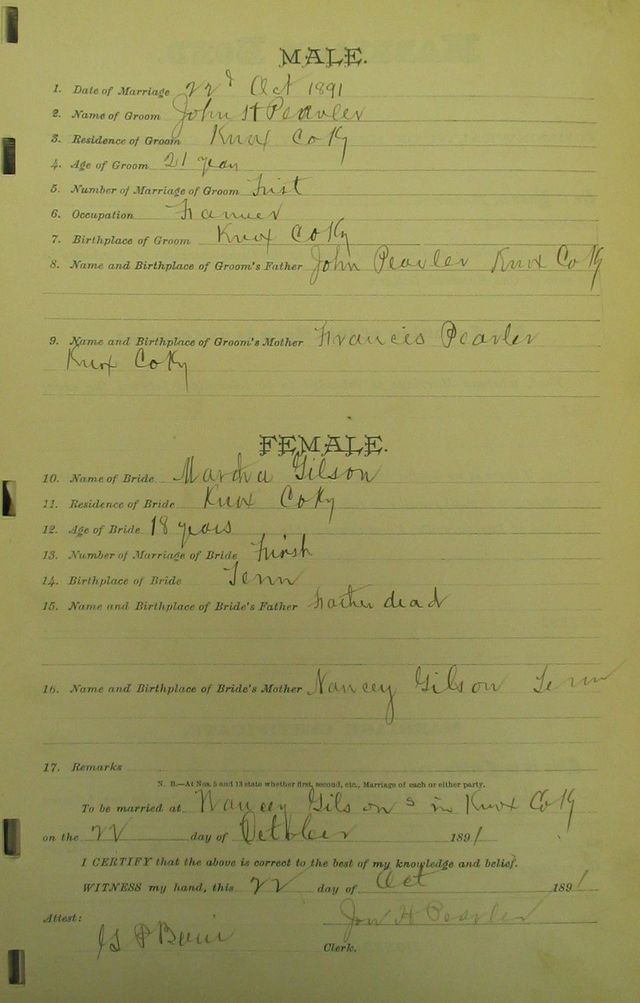 MALE.
1. Date of Marriage 22d Oct 1891
2. Name of Groom John H Pearler
3. Residence of Groom Knox Co Ky
4. Age of Groom 21 years
5. Number of Marriage of Groom First
6. Occupation Farmer
7. Birthplace of Groom Knox Co Ky
8. Name and Birthplace of Groom's Father John Pearler Knox Co Ky
9. Name and Birthplace of Groom's Mother Frances Pearler
Knox Co Ky
FEMALE.
10. Name of Bride Martha Gilson
11. Residence of Bride Knox Co Ky
12. Age of Bride 18 years
13. Number of Marriage of Bride First
14. Birthplace of Bride Tenn
15. Name and Birthplace of Bride's Father Father dead
16. Name and Birthplace of Bride's Mother Nancey Gilson Tenn
17. Remarks
N. B.—At Nos. 5 and 13 state whether first, second, etc., Marriage of each or either party.
To be married at Nancey Gilsons in Knox Co Ky
on the 22 day of October 1891
I CERTIFY that the above is correct to the best of my knowledge and belief.
WITNESS my hand, this 22 day of Oct 1891
Attest: Jon H Pearler
Clerk.